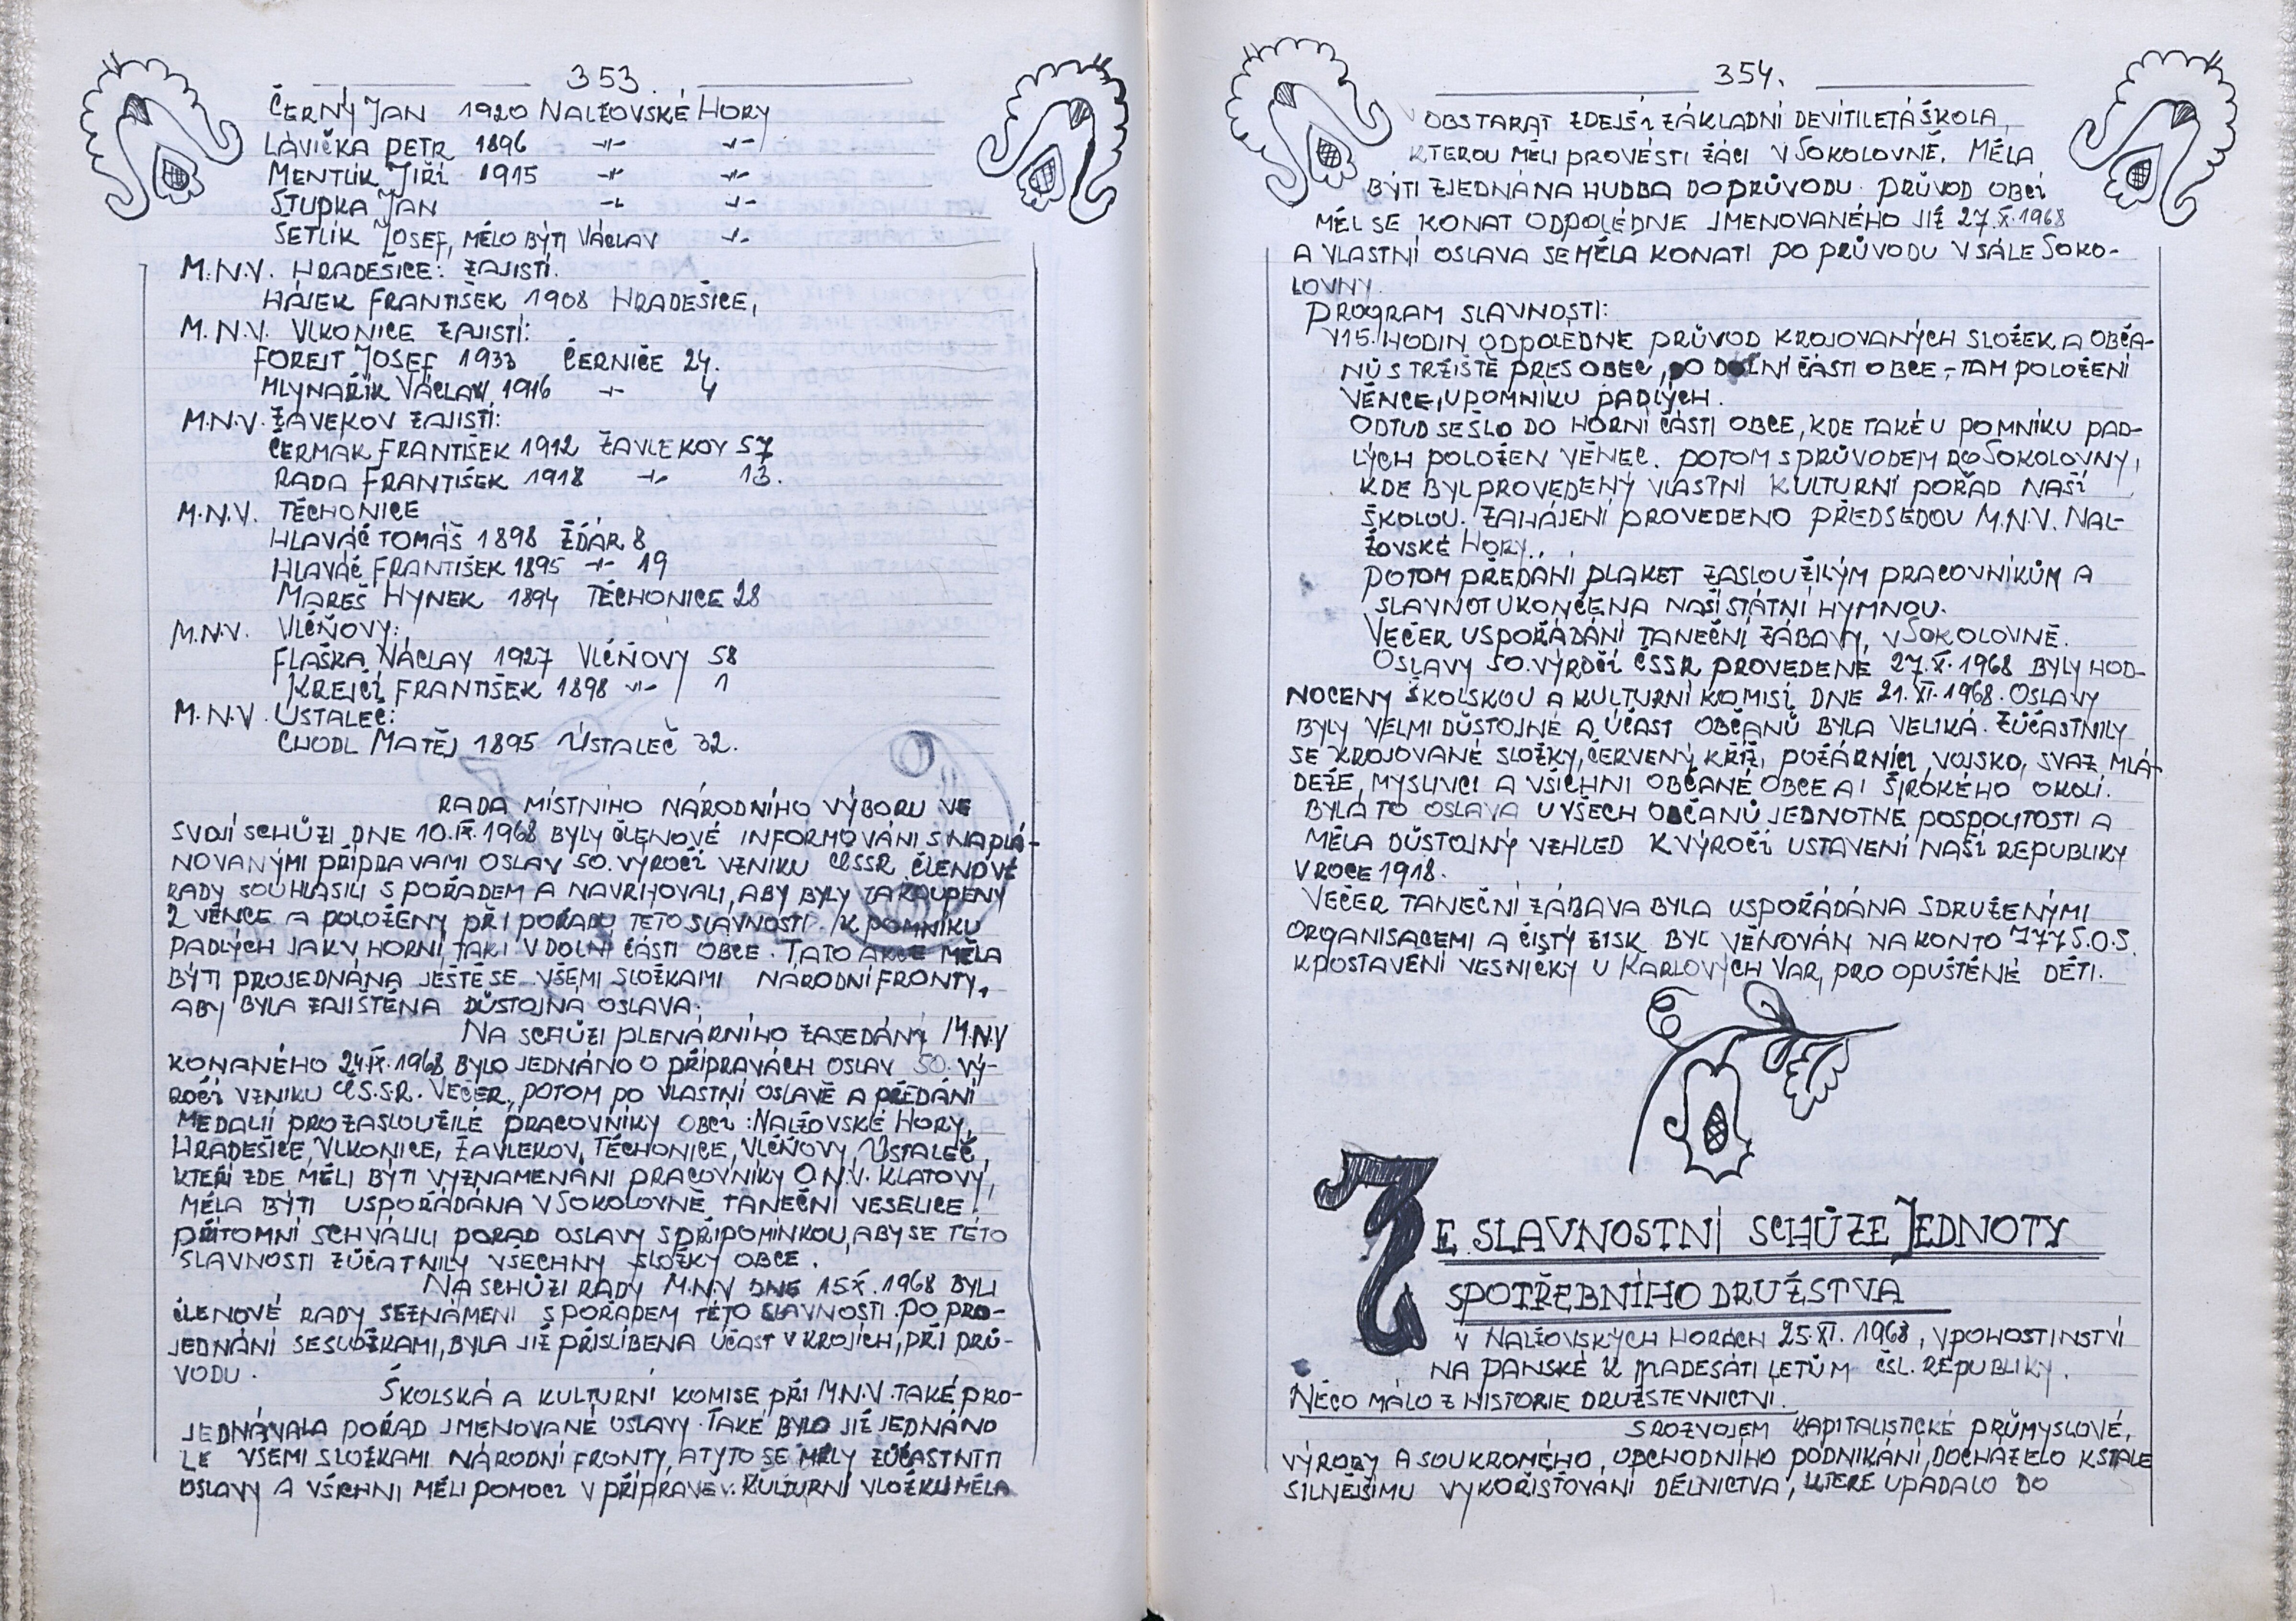 353.
ČERNÝ JAN 1920 NALŽOVSKÉ HORY
LAVIČKA PETR 1896 -"- -"-
MENTLÍK JIŘÍ 1915 -"- -"-
ŠTUPKA JAN -"- -"-
ŠETLÍK JOSEF, MĚLO BÝTI VÁCLAV -"-
M.N.V. HRADEŠICE: ZAJISTÍ.
HÁJEK FRANTIŠEK 1908 HRADEŠICE,
M.N.V. VLKONICE ZAJISTÍ:
FOREJT JOSEF 1933 ČERNIČE 24.
MLYNAŘÍK VÁCLAV 1916 -"- 4
M.N.V. ŽAVEKOV ZAJISTÍ:
ČERMÁK FRANTIŠEK 1912 ŽAVLEKOV 57
RADA FRANTIŠEK 1918 -"- 13.
M.N.V. TĚCHONICE
HLAVÁČ TOMÁŠ 1898 ŽĎÁR 8
HLAVÁČ FRANTIŠEK 1895 -"- 19
MAREŠ HYNEK 1894 TĚCHONICE 28
M.N.V. VLČŇOVY:
FLAŠKA VÁCLAV 1927 VLČŇOVY 58
KREJČÍ FRANTIŠEK 1898 -"- 1
M.N.V. ÚSTALEČ:
CHODL MATĚJ 1895 ÚSTALEČ 32.
RADA MÍSTNÍHO NÁRODNÍHO VÝBORU VE
SVOJÍ SCHŮZI DNE 10.IX.1968 BYLY ČLENOVÉ INFORMOVÁNI S NAPLÁ-
NOVANÝMI PŘÍPRAVAMI OSLAV 50. VÝROČÍ VZNIKU ČSSR. ČLENOVÉ
RADY SOUHLASILI S POŘADEM A NAVRHOVALI, ABY BYLY ZAKOUPENY
2 VĚNCE A POLOŽENY PŘI POŘADU TÉTO SLAVNOSTI. K POMNÍKU
PADLÝCH JAK V HORNÍ, TAK I V DOLNÍ ČÁSTI OBCE. TATO AKCE MĚLA
BÝTI PROJEDNÁNA JEŠTĚ SE VŠEMI SLOŽKAMI NÁRODNÍ FRONTY,
ABY BYLA ZAJIŠTĚNA DŮSTOJNÁ OSLAVA.
NA SCHŮZI PLENÁRNÍHO ZASEDÁNÍ M.N.V
KONANÉHO 24.IX.1968 BYLO JEDNÁNO O PŘÍPRAVÁCH OSLAV 50. VÝ-
ROČÍ VZNIKU ČS.S.R. VEČER, POTOM PO VLASTNÍ OSLAVĚ A PŘEDÁNÍ
MEDAILÍ PRO ZASLOUŽILÉ PRACOVNÍKY OBCÍ: NALŽOVSKÉ HORY,
HRADEŠICE, VLKONICE, ŽAVLEKOV, TĚCHONICE, VLČŇOVY, ÚSTALEČ
KTEŘÍ ZDE MĚLI BÝTI VYZNAMENÁNI PRACOVNÍKY O.N.V. KLATOVY,
MĚLA BÝTI USPOŘÁDÁNA V SOKOLOVNĚ TANEČNÍ VESELICE.
PŘÍTOMNÍ SCHVÁLILI POŘAD OSLAVY S PŘIPOMÍNKOU, ABY SE TÉTO
SLAVNOSTI ZÚČATNILY VŠECHNY SLOŽKY OBCE.
NA SCHŮZI RADY M.N.V DNE 15.X.1968 BYLI
ČLENOVÉ RADY SEZNÁMENI S POŘADEM TÉTO SLAVNOSTI. PO PRO-
JEDNÁNÍ SE SLOŽKAMI, BYLA JIŽ PŘISLÍBENA ÚČAST V KROJÍCH, PŘI PRŮ-
VODU.
ŠKOLSKÁ A KULTURNÍ KOMISE PŘI M.N.V. TAKÉ PRO-
JEDNÁVALA POŘAD JMENOVANÉ OSLAVY. TAKÉ BYLO JIŽ JEDNÁNO
ZE VŠEMI SLOŽKAMI NÁRODNÍ FRONTY, A TYTO SE MĚLY ZÚČASTNITI
OSLAVY A VŠICHNI MĚLI POMOCI V PŘÍPRAVĚ. KULTURNÍ VLOŽKU MĚLA
354.
OBSTARAT ZDEJŠÍ ZÁKLADNÍ DEVÍTILETÁ ŠKOLA,
KTEROU MĚLI PROVÉSTI ŽÁCI V SOKOLOVNĚ. MĚLA
BÝTI ZJEDNÁNA HUDBA DO PRŮVODU. PRŮVOD OBCÍ
MĚL SE KONAT ODPOLEDNE JMENOVANÉHO JIŽ 27.X.1968
A VLASTNÍ OSLAVA SE MĚLA KONATI PO PRŮVODU V SÁLE SOKO-
LOVNY.
PROGRAM SLAVNOSTI:
V 15. HODIN ODPOLEDNE PRŮVOD KROJOVANÝCH SLOŽEK A OBČA-
NŮ S TRŽIŠTĚ PŘES OBEC, DO DOLNÍ ČÁSTI OBCE, - TAM POLOŽENÍ
VĚNCE, U POMNÍKU PADLÝCH.
ODTUD SE ŠLO DO HORNÍ ČÁSTI OBCE, KDE TAKÉ U POMNÍKU PAD-
LÝCH POLOŽEN VĚNEC. POTOM S PRŮVODEM DO SOKOLOVNY,
KDE BYL PROVEDENÝ VLASTNÍ KULTURNÍ POŘAD NAŠÍ
ŠKOLOU. ZAHÁJENÍ PROVEDENO PŘEDSEDOU M.N.V. NAL-
ŽOVSKÉ HORY.,
POTOM PŘEDÁNÍ PLAKET ZASLOUŽILÝM PRACOVNÍKŮM A
SLAVNOT UKONČENA NAŠÍ STÁTNÍ HYMNOU.
VEČER USPOŘÁDÁNÍ TANEČNÍ ZÁBAVY, V SOKOLOVNĚ.
OSLAVY 50. VÝROČÍ ČSSR PROVEDENÉ 27.X.1968 BYLY HOD-
NOCENY ŠKOLSKOU A KULTURNÍ KOMISÍ DNE 21.XI.1968. OSLAVY
BYLY VELMI DŮSTOJNÉ A ÚČAST OBČANŮ BYLA VELIKÁ. ZÚČASTNILY
SE KROJOVANÉ SLOŽKY, ČERVENÝ KŘÍŽ, POŽÁRNÍCI, VOJSKO, SVAZ MLÁ-
DEŽE, MYSLIVCI A VŠICHNI OBČANÉ OBCE A I ŠIROKÉHO OKOLÍ.
BYLA TO OSLAVA U VŠECH OBČANŮ JEDNOTNÉ POSPOLITOSTI A
MĚLA DŮSTOJNÝ VZHLED K VÝROČÍ USTAVENÍ NAŠÍ REPUBLIKY
V ROCE 1918.
VEČER TANEČNÍ ZÁBAVA BYLA USPOŘÁDÁNA SDRUŽENÝMI
ORGANISACEMI A ČISTÝ ZISK BYL VĚNOVÁN NA KONTO 777 S.O.S.
K POSTAVENÍ VESNIČKY U KARLOVÝCH VAR, PRO OPUŠTĚNÉ DĚTI.
ZE SLAVNOSTNÍ SCHŮZE JEDNOTY
SPOTŘEBNÍHO DRUŽSTVA
V NALŽOVSKÝCH HORÁCH 25.XI.1968, V POHOSTINSTVÍ
NA PANSKÉ K PADESÁTI LETŮM ČSL. REPUBLIKY.
NĚCO MÁLO Z HISTORIE DRUŽSTEVNICTVÍ.
S ROZVOJEM KAPITALISTICKÉ PRŮMYSLOVÉ,
VÝROBY A SOUKROMÉHO, OBCHODNÍHO PODNIKÁNÍ, DOCHÁZELO K STÁLE
SILNĚJŠÍMU VYKOŘISŤOVÁNÍ DĚLNICTVA, KTERÉ UPADALO DO